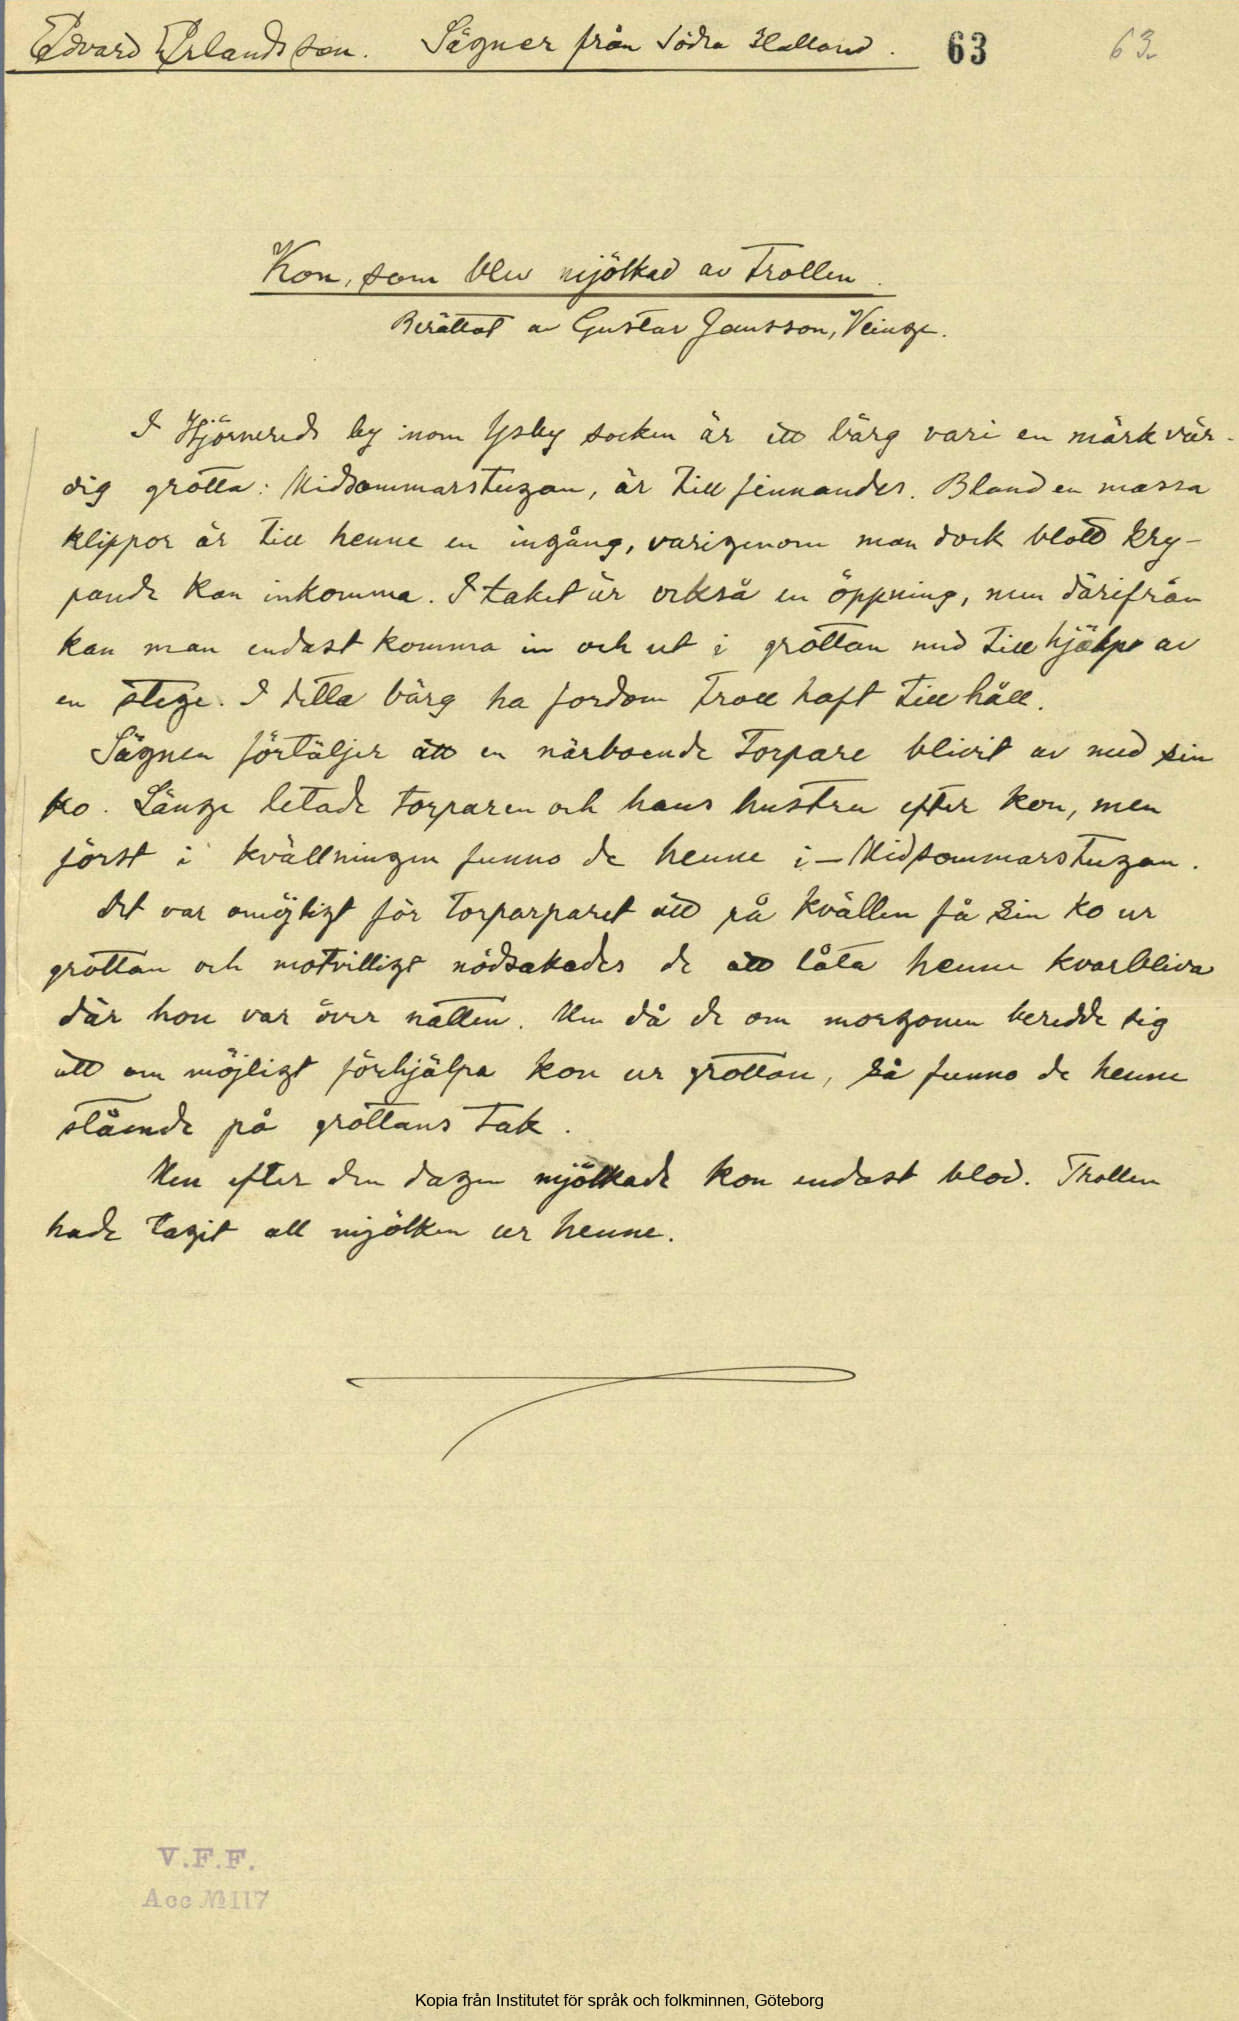 Edvard Erlandsson. Sägner från Södra Halland. 63 63
Kon, som blev mjölkad av trollen.
Berättat av Gustav Jansson, Veinge.
I Hjörnereds by inom Ysby socken är ett bärg vari en märkvär-
dig grotta: Midsommarstugan, är till finnandes. Bland en massa
klippor är till henne en ingång, varigenom man dock blott kry-
pande kan inkomma. I taket är också en öppning, men därifrån
kan man endast komma in och ut i grottan med till hjälp av
en stege. I detta bärg ha fordom troll haft till håll.
Sägnen förtäljer att en närboende torpare blivit av med sin
ko. Länge letade torparen och hans hustru efter kon, men
först i kvällningen funno de henne i – Midsommarstugan.
Det var omöjligt för torparparet att på kvällen få sin ko ur
grottan och motvilligt nödsakades de att låta henne kvarbliva
där hon var över natten. Men då de om morgonen beredde sig
att om möjligt förhjälpa kon ur grottan, så funno de henne
stående på grottans tak.
Men efter den dagen mjölkade kon endast blod. Trollen
hade tagit all mjölken ur henne.
V.F.F.
Acc № 117
Kopia från Institutet för språk och folkminnen, Göteborg